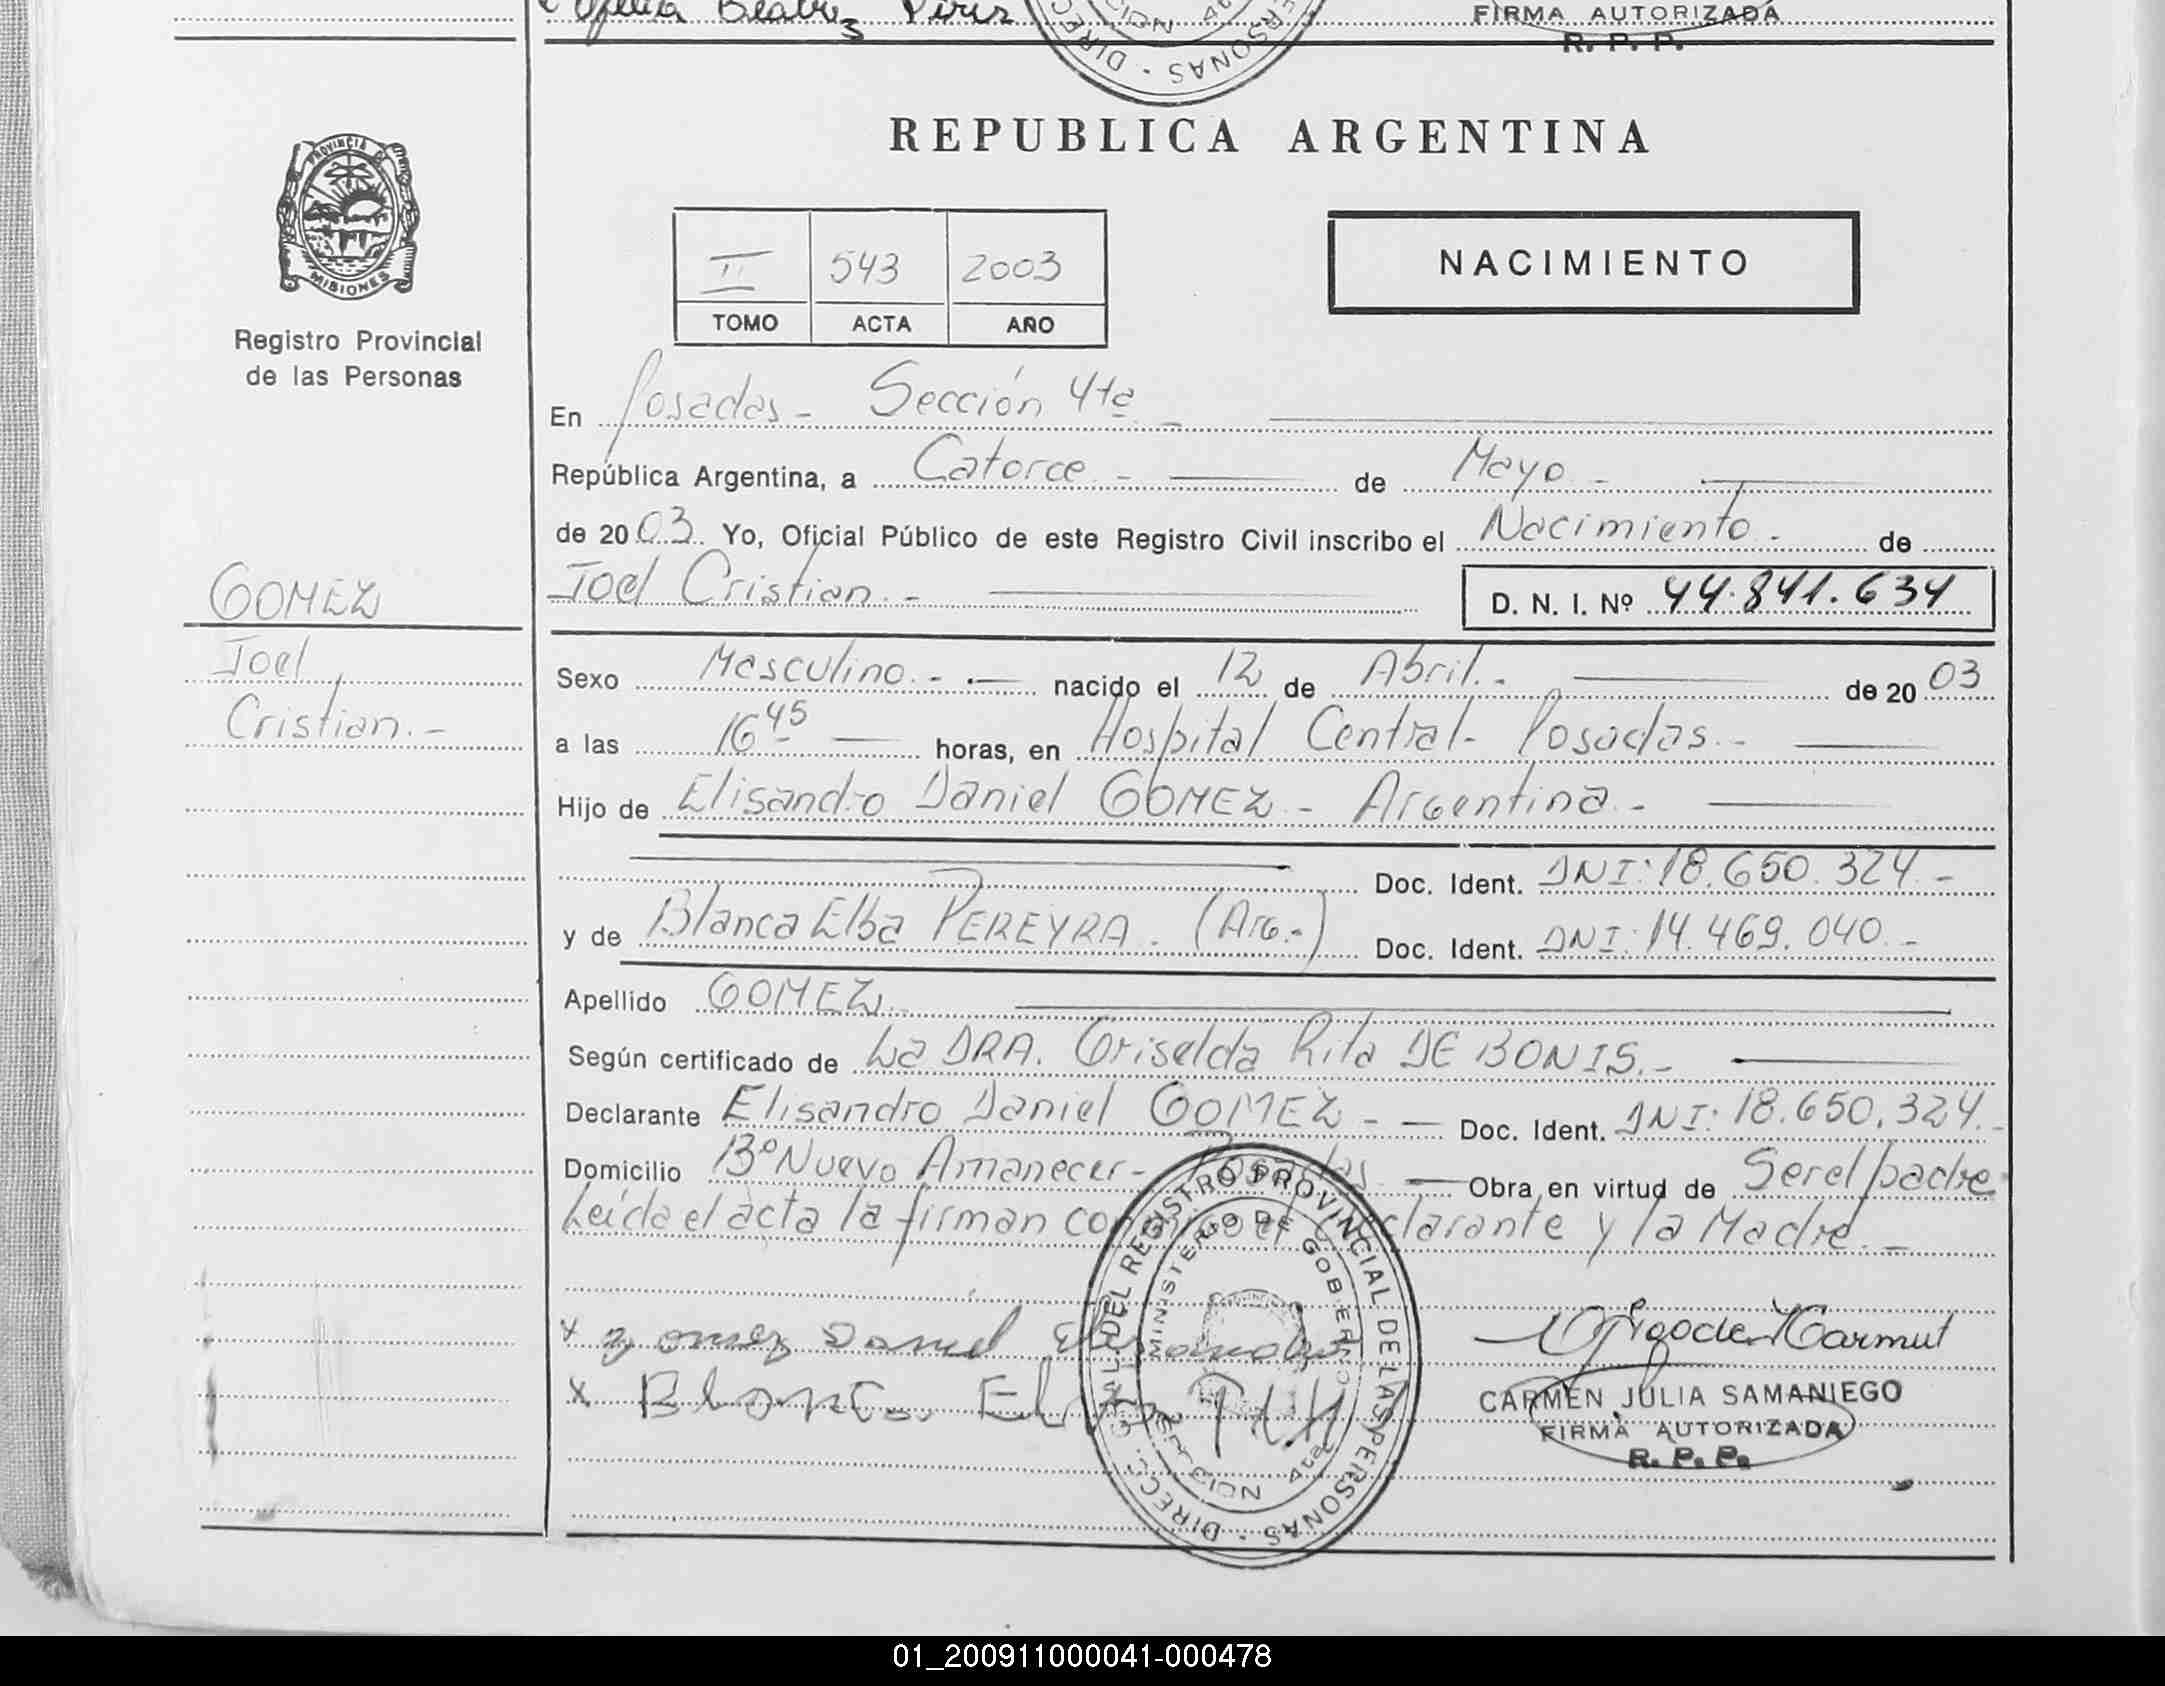 Ofelia Beatriz Piriz
FIRMA AUTORIZADA
R. P. P.
DIREC PERSONAS
REPUBLICA ARGENTINA
PROVINCIA DE
MISIONES
Registro Provincial
de las Personas
II 543 2003
TOMO ACTA AÑO
NACIMIENTO
En Posadas - Sección 4ta -
República Argentina, a Catorce - de Mayo -
de 2003 Yo, Oficial Público de este Registro Civil inscribo el Nacimiento - de
Joel Cristian.-
D. N. I. Nº 44.841.634
GOMEZ
Joel
Cristian.-
Sexo Masculino.- nacido el 12 de Abril.- de 2003
a las 16 45 horas, en Hospital Central - Posadas.-
Hijo de Elisandro Daniel GOMEZ - Argentina.-
Doc. Ident. DNI: 18.650.324.-
y de Blanca Elba PEREYRA. (Arg.-) Doc. Ident. DNI: 14.469.040.-
Apellido GOMEZ.-
Según certificado de La DRA. Griselda Rita DE BONIS.-
Declarante Elisandro Daniel GOMEZ - Doc. Ident. DNI: 18.650.324.-
Domicilio Bº Nuevo Amanecer - Posadas Obra en virtud de Ser el padre
Leída el acta la firman conmigo el declarante y la Madre.-
x Gomez Daniel Elisandro
x Blanca Elba
DEL REGISTRO PROVINCIAL DE LAS PERSONAS
MINISTERIO DE GOBIERNO
4ta
CARMEN JULIA SAMANIEGO
FIRMA AUTORIZADA
R. P. P.
01_200911000041-000478